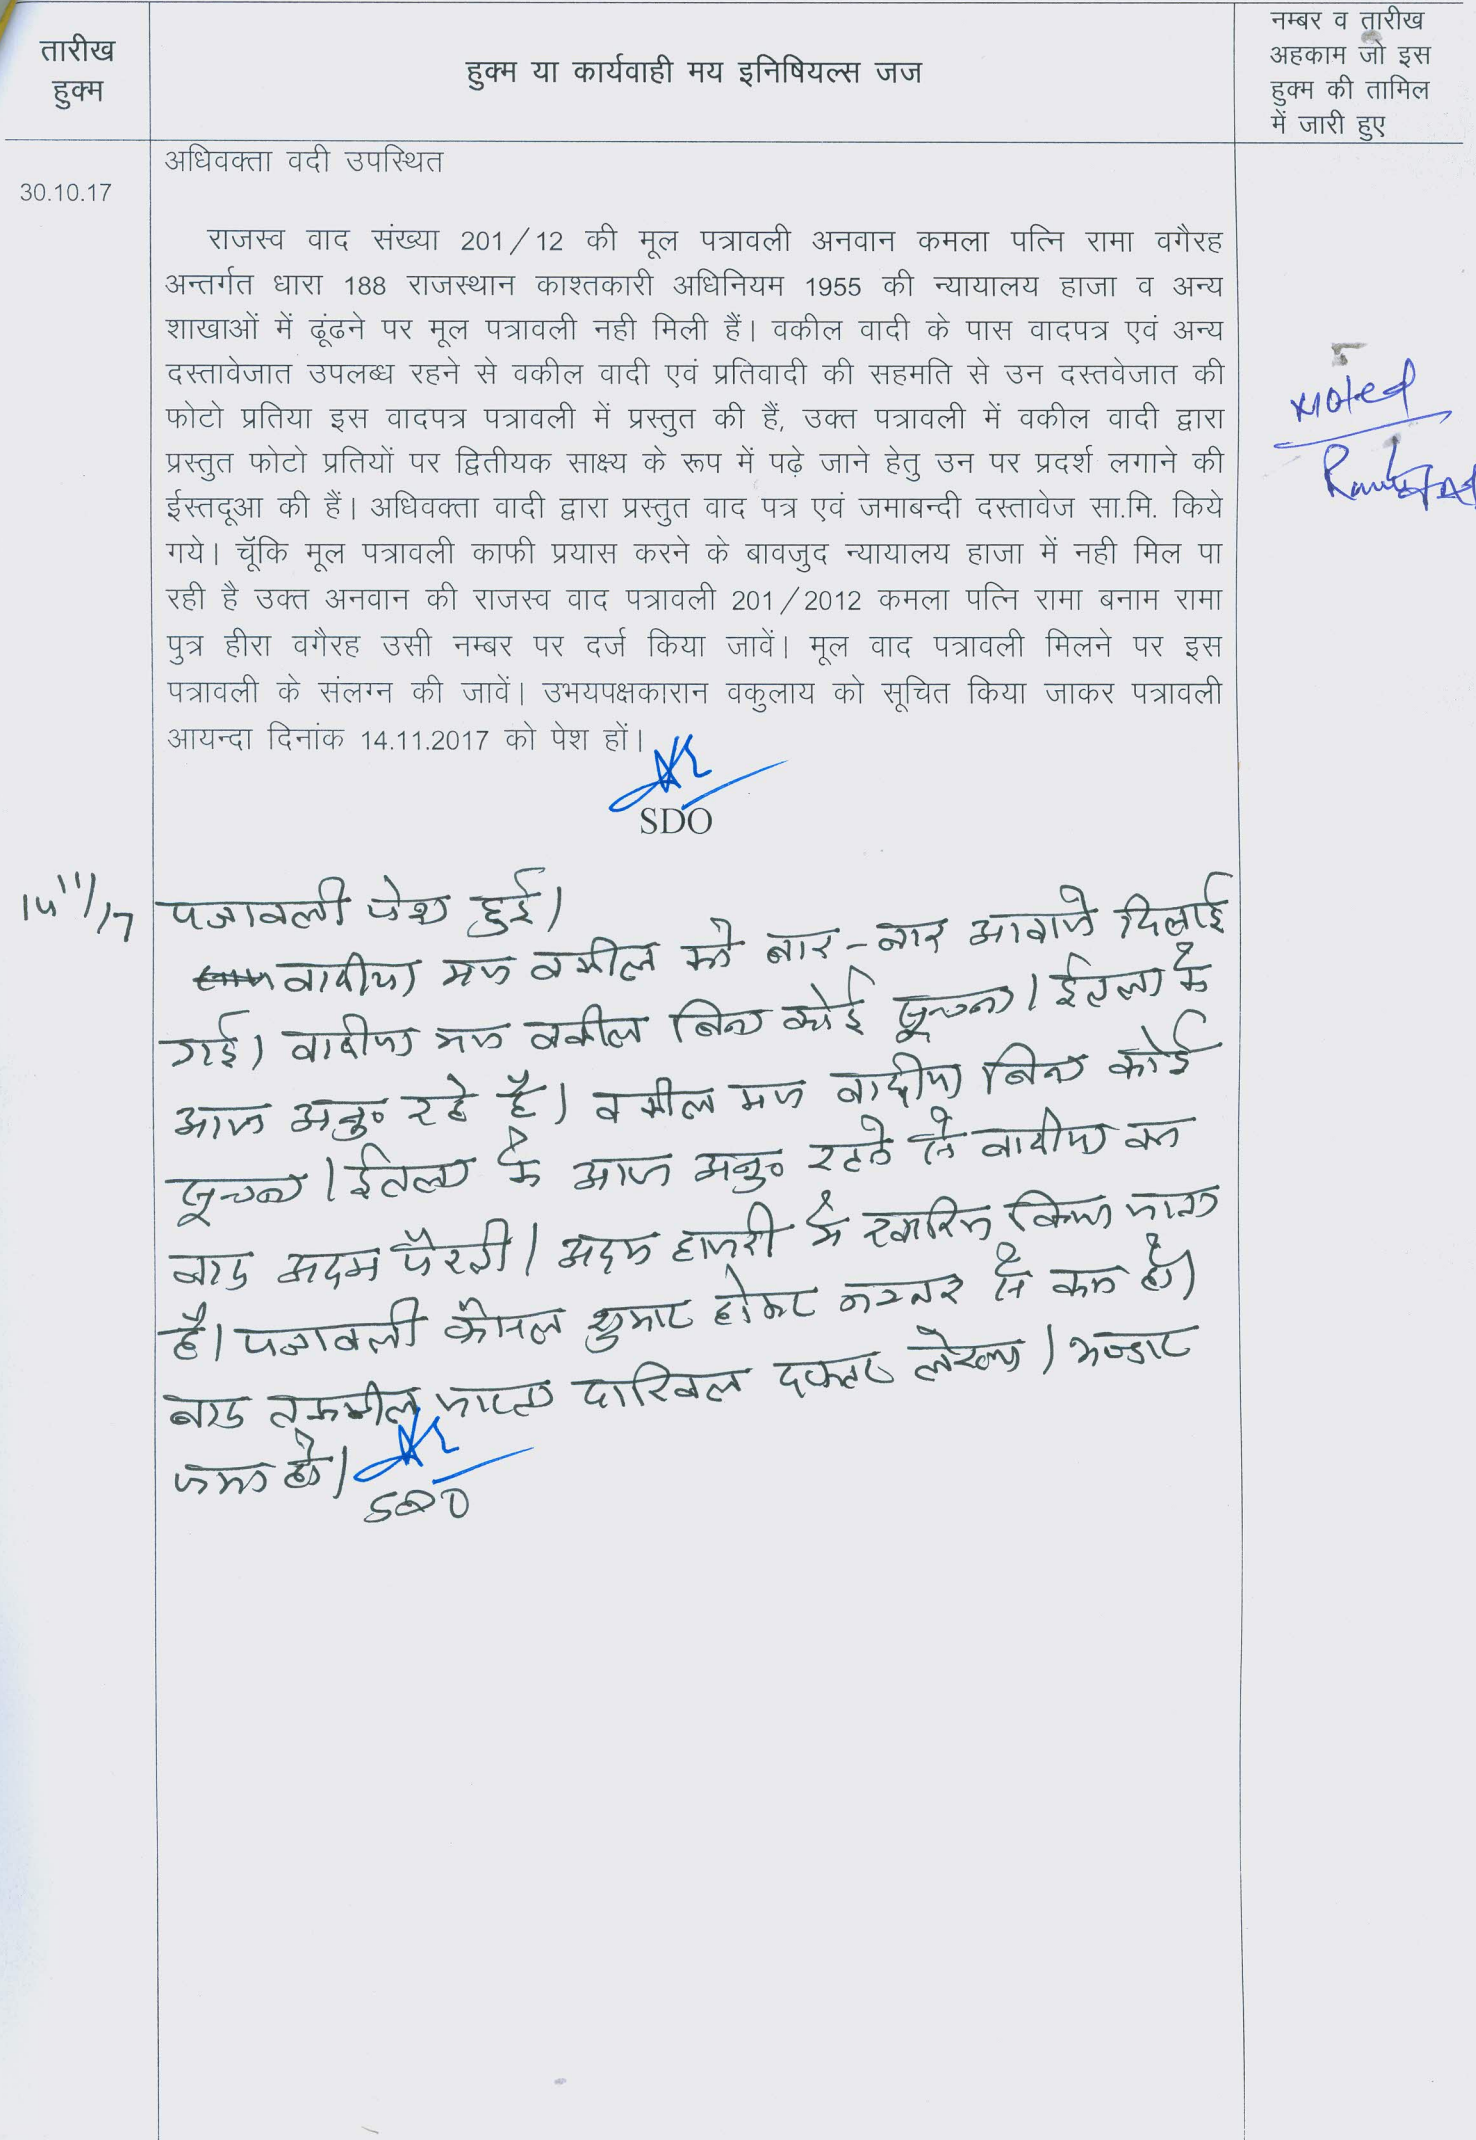 तारीख
हुक्म
हुक्म या कार्यवाही मय इनिषियल्स जज
नम्बर व तारीख
अहकाम जो इस
हुक्म की तामिल
में जारी हुए
30.10.17
अधिवक्ता वदी उपस्थित
राजस्व वाद संख्या 201/12 की मूल पत्रावली अनवान कमला पत्नि रामा वगैरह
अन्तर्गत धारा 188 राजस्थान काश्तकारी अधिनियम 1955 की न्यायालय हाजा व अन्य
शाखाओं में ढूंढने पर मूल पत्रावली नही मिली हैं। वकील वादी के पास वादपत्र एवं अन्य
दस्तावेजात उपलब्ध रहने से वकील वादी एवं प्रतिवादी की सहमति से उन दस्तवेजात की
फोटो प्रतिया इस वादपत्र पत्रावली में प्रस्तुत की हैं, उक्त पत्रावली में वकील वादी द्वारा
प्रस्तुत फोटो प्रतियों पर द्वितीयक साक्ष्य के रूप में पढ़े जाने हेतु उन पर प्रदर्श लगाने की
ईस्तदूआ की हैं। अधिवक्ता वादी द्वारा प्रस्तुत वाद पत्र एवं जमाबन्दी दस्तावेज सा.मि. किये
गये। चूॅकि मूल पत्रावली काफी प्रयास करने के बावजुद न्यायालय हाजा में नही मिल पा
रही है उक्त अनवान की राजस्व वाद पत्रावली 201/2012 कमला पत्नि रामा बनाम रामा
पुत्र हीरा वगैरह उसी नम्बर पर दर्ज किया जावें। मूल वाद पत्रावली मिलने पर इस
पत्रावली के संलग्न की जावें। उभयपक्षकारान वकुलाय को सूचित किया जाकर पत्रावली
आयन्दा दिनांक 14.11.2017 को पेश हों।
SDO
Noted
14/11/17
पत्रावली पेश हुई।
वादीया मय वकील को बार-बार आवाजे दिलाई
गई। वादीया मय वकील बिना कोई सूचना/ईतला के
आज अनु० रहे है। वकील मय वादीया बिना कोई
सूचना/ईतला के आज अनु० रहने से वादीया का
वाद अदम पैरवी/अदम हाजरी में खारिज किया जाता
है। पत्रावली फैसल शुमार होकर नम्बर से कम हो।
बाद तकमील जाप्ता दाखिल दफ्तर लेखा/भण्डार
जमा हो।
SDO